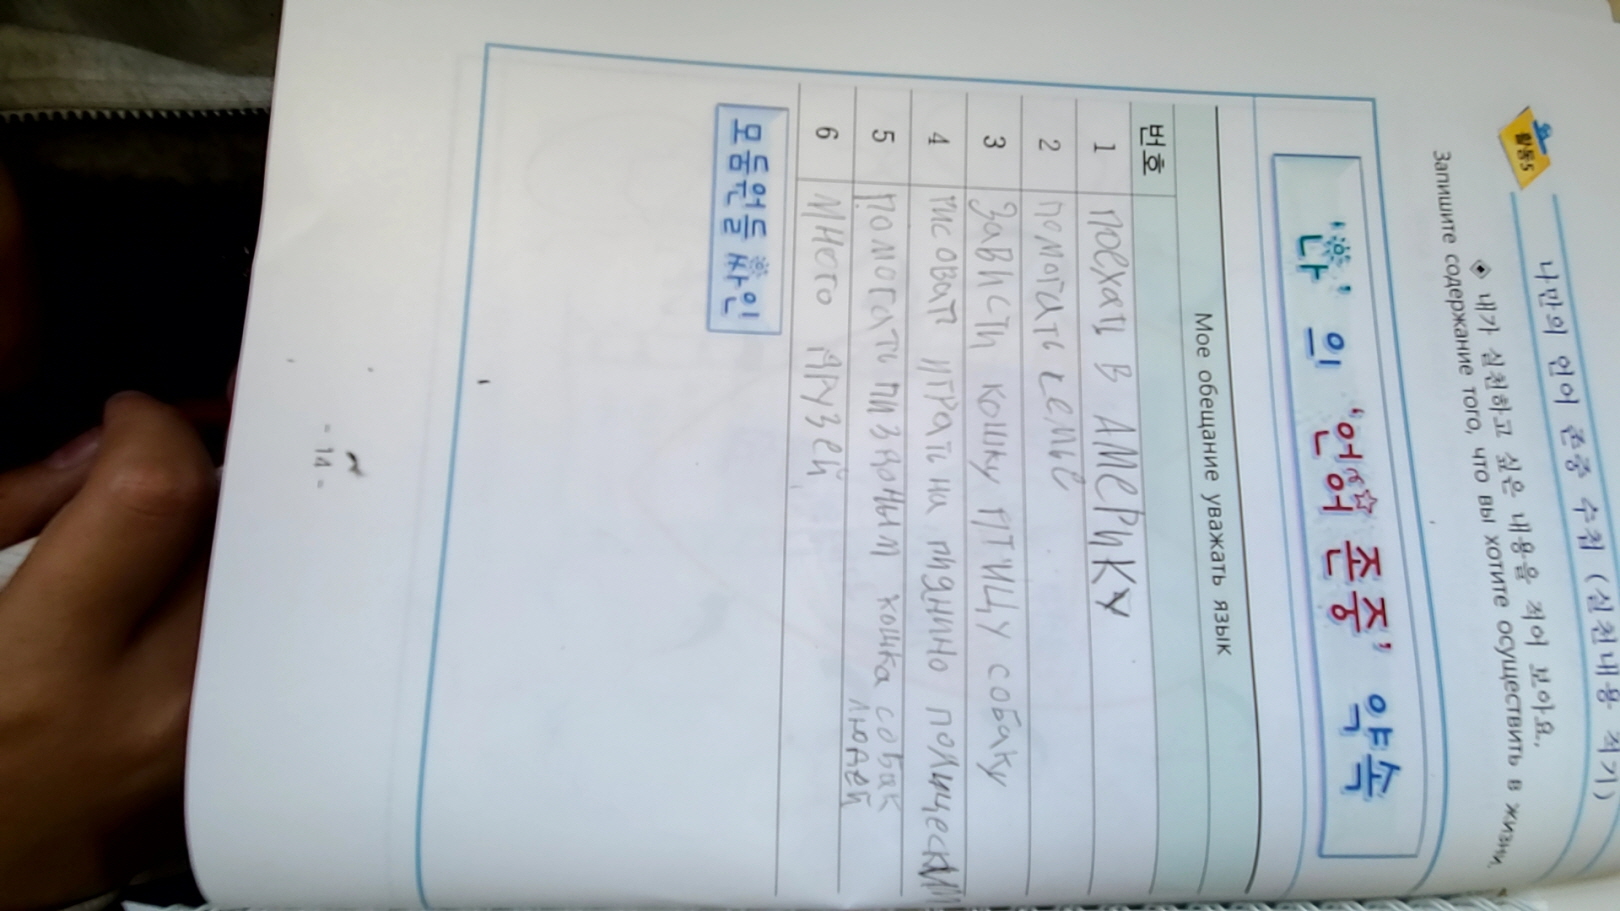 활동5
나만의 언어 존중 수칙 (실천내용 적기)
◈ 내가 실천하고 싶은 내용을 적어 보아요.
Запишите содержание того, что вы хотите осуществить в жизни.
'나' 의 '언어 존중' 약속
Мое обещание уважать язык
번호
1 поехать в АМеРиКу
2 помогать семье
3 Зависти кошку птицу собаку
4 рисоват играть на пиянино полицеским
5 помогать кошка собак
людей
6 много друзей
모둠원들 싸인
- 14 -